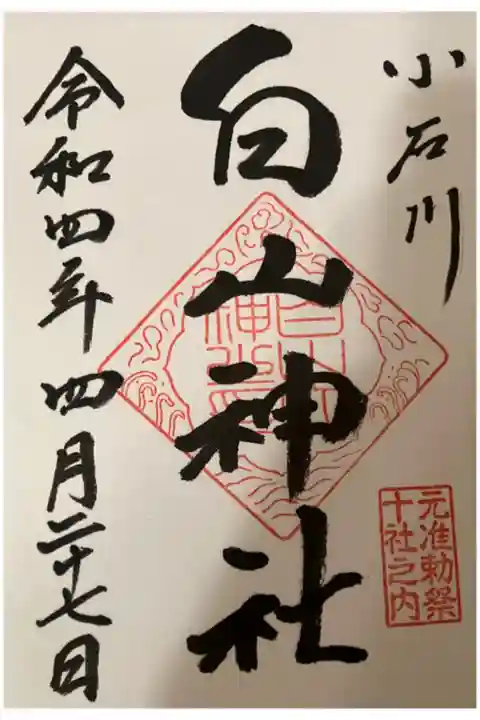 小石川
元准勅祭
十社之内
白山神社
令和四年四月二十七日